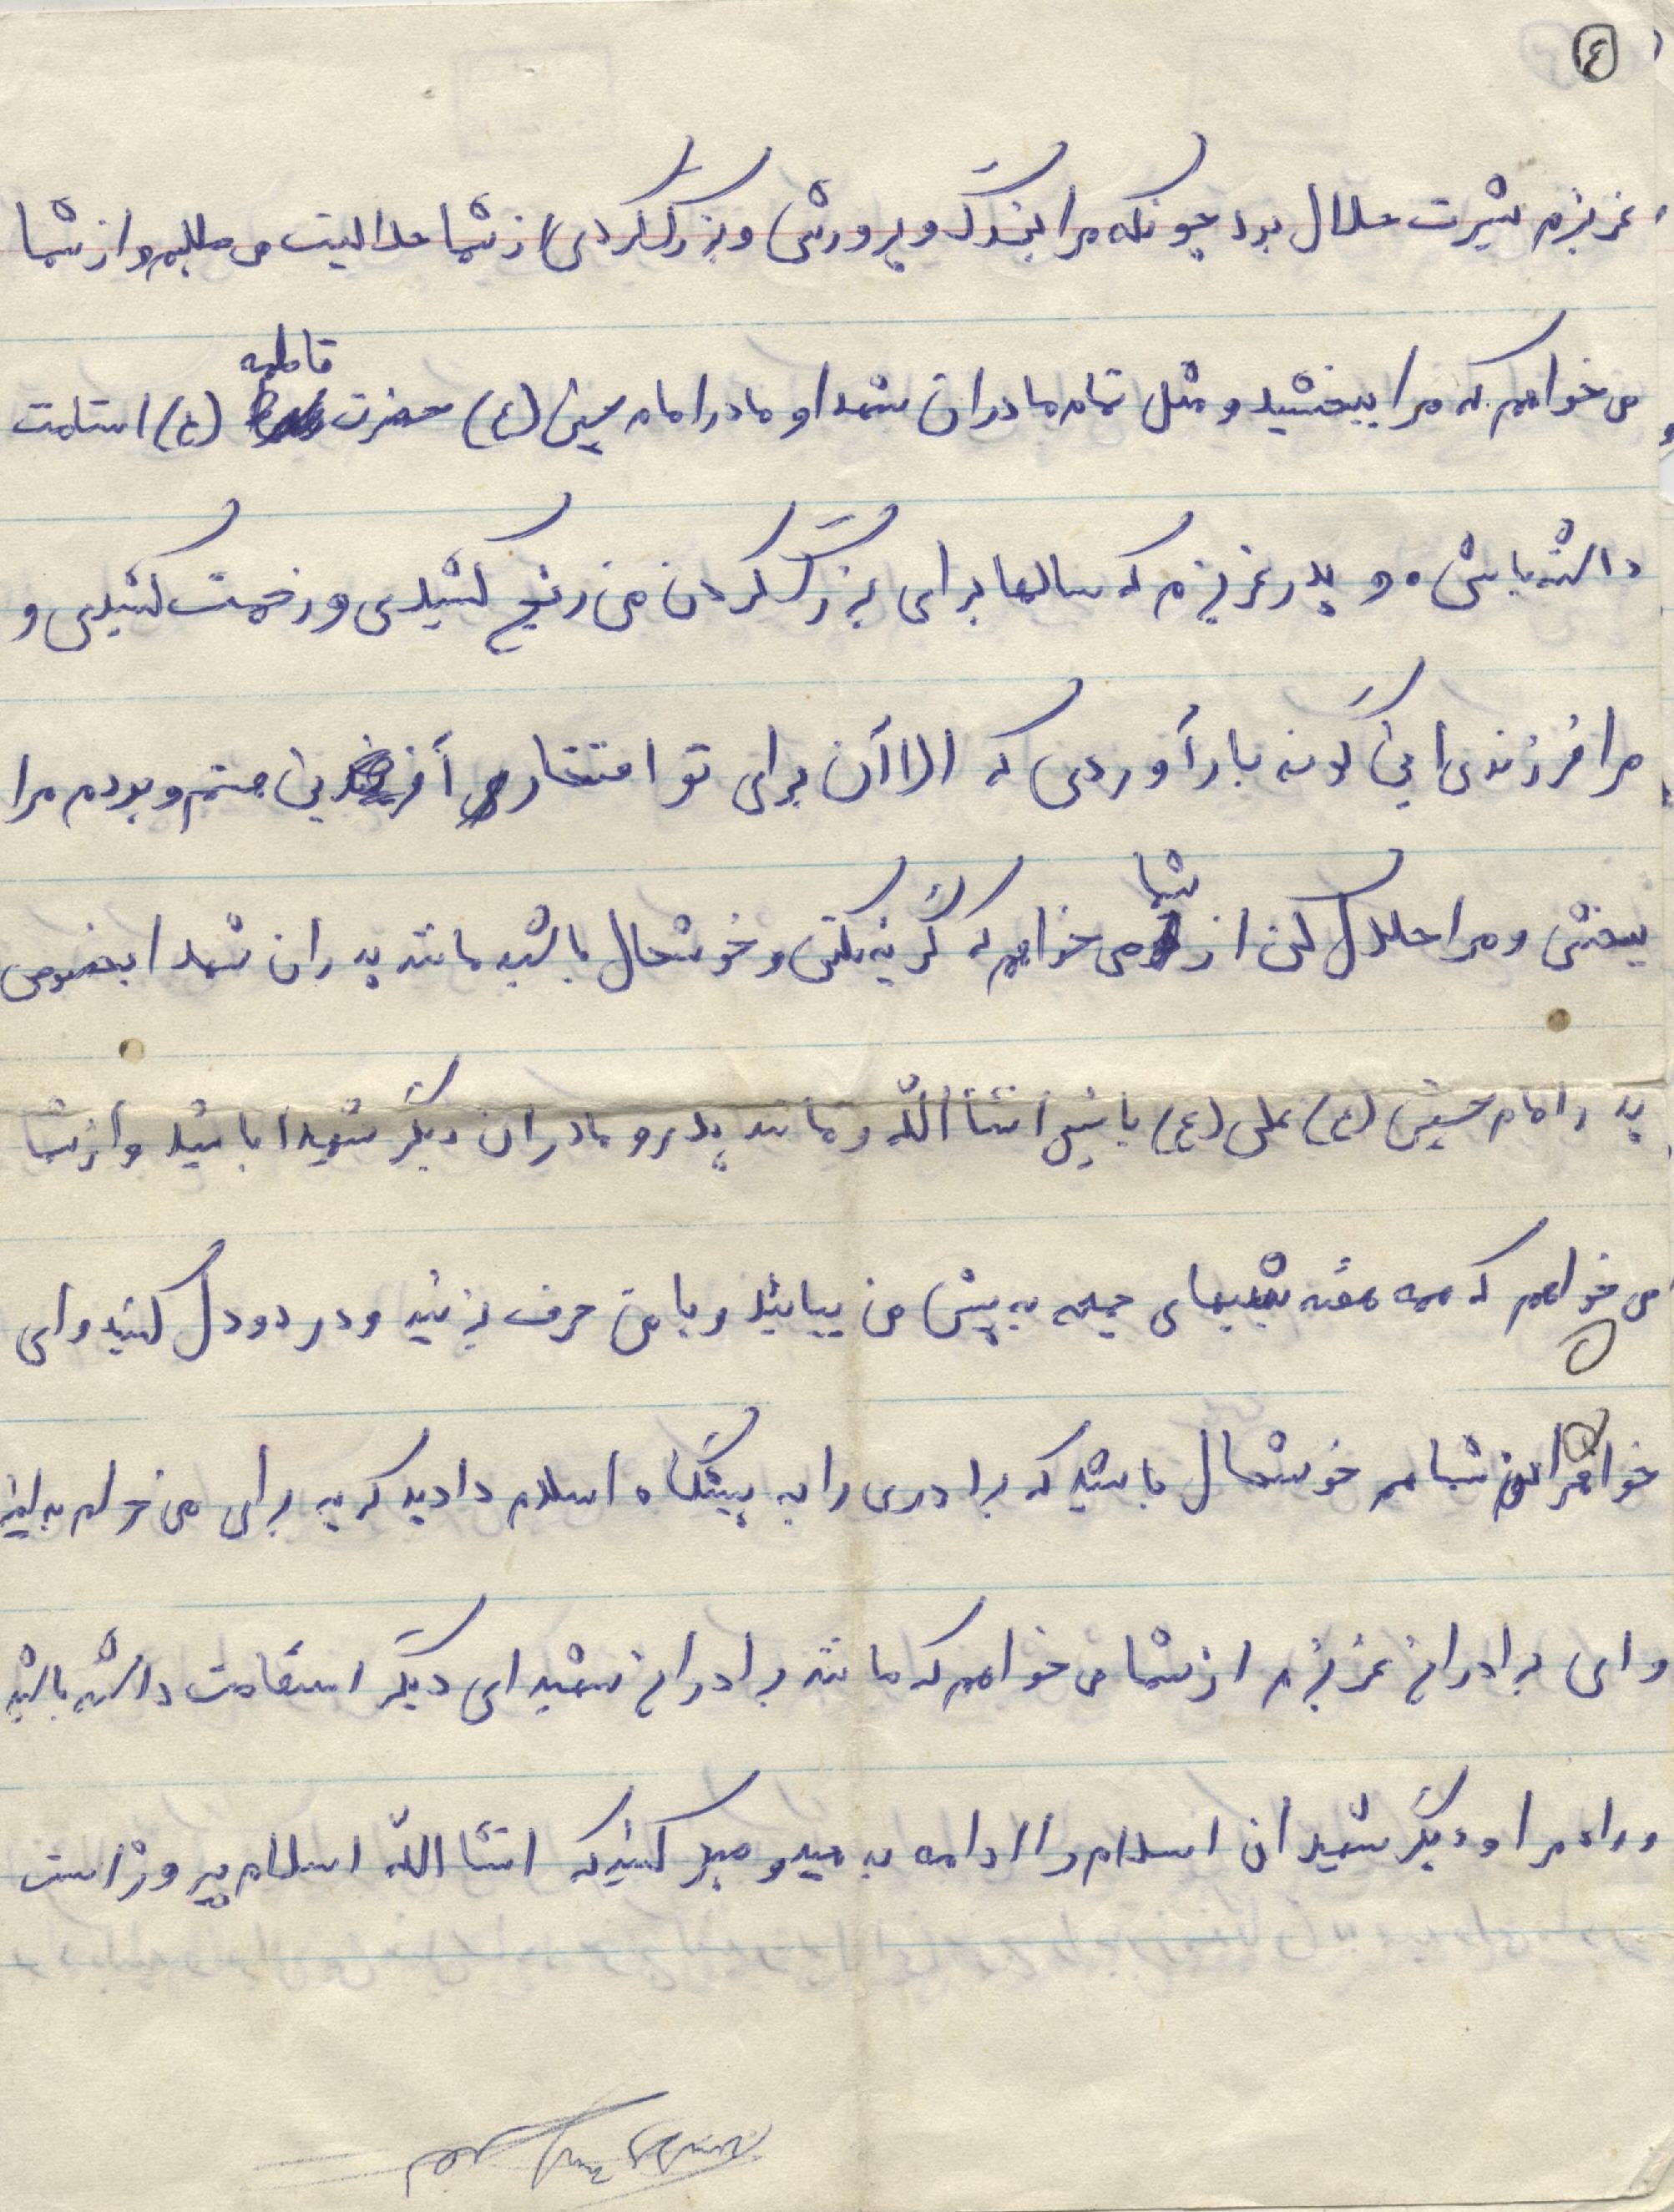 ٤
عزیزم شیرت حلال بود چونکه مرا بزرگ و پرورش و بزرگ کردی از شما حلالیت می طلبم و از شما
می خواهم که مرا ببخشید و مثل تمام مادران شهدا و مادر امام حسین (ع) حضرت فاطمه (ع) استقامت
داشته باش ، و پدر عزیزم که سالها برای بزرگ کردن من رنج کشیدی و زحمت کشیدی و
مرا فرزندی این گونه بار آوردی که الاآن برای تو افتخار آفرین هستم و بودم مرا
ببخش و مرا حلال کن از شما می خواهم که گریه نکنی و خوشحال باشید مانند پدران شهدا بخصوص
پدر امام حسین (ع) علی (ع) باشی انشاالله و مانند پدر و مادران دیگر شهیدا باشید و از شما
می خواهم که همه هفته شبهای جمعه به پیش من بیایید و با من حرف بزنید و درد و دل کنید و ای
خواهران شما هم خوشحال باشید که برادری را به پیشگاه اسلام دادید که به برای می خواهم
و ای برادران عزیزم از شما می خواهم که مانند برادران شهید ای دیگر استقامت داشته باشید
و راه مرا و دیگر شهیدان اسلام را ادامه به هید و صبر کنید که انشاالله اسلام پیروز است